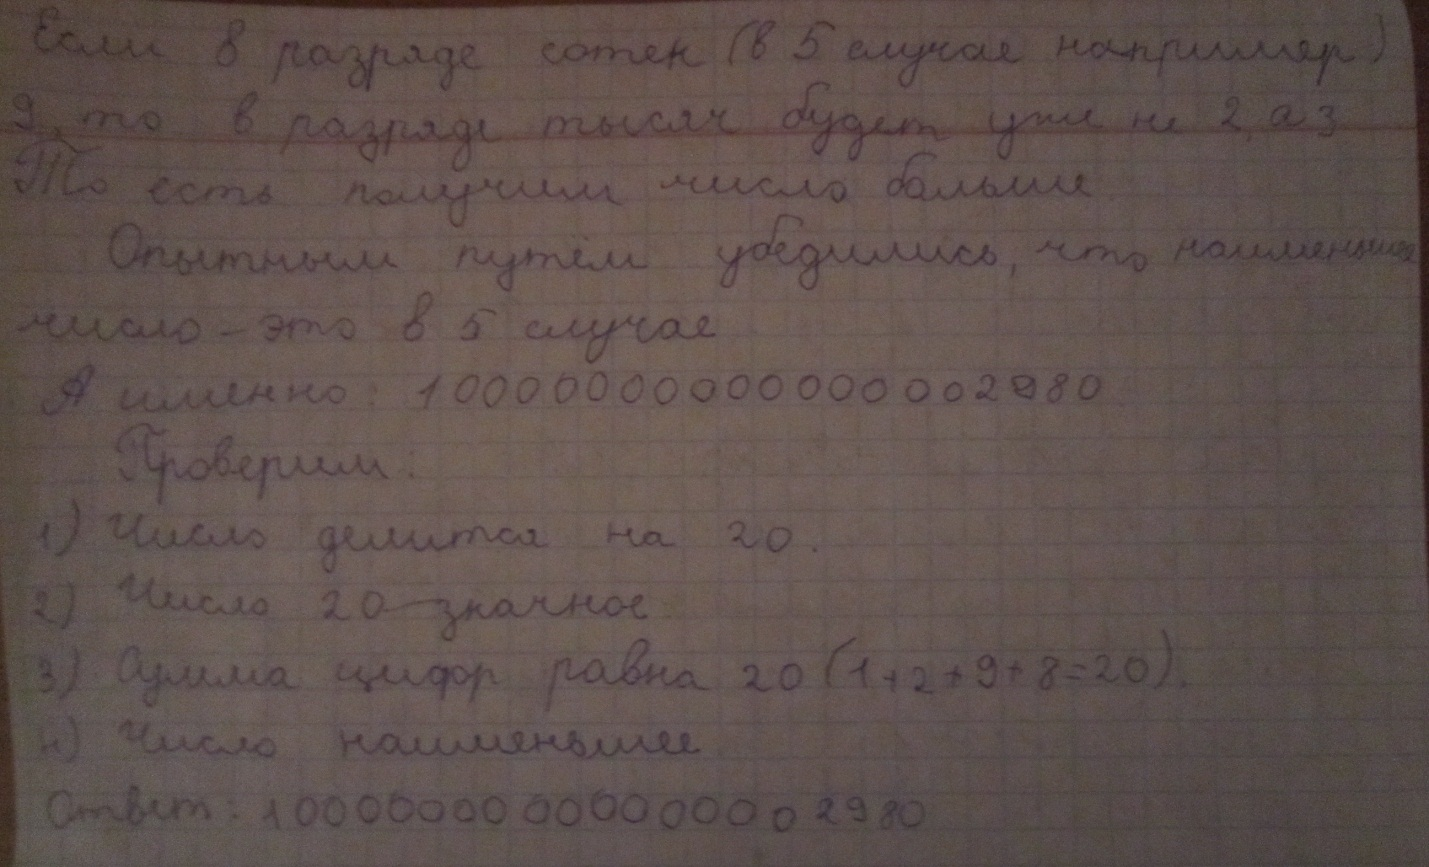 Если в разряде сотен (в 5 случае например)
9, то в разряде тысяч будет уже не 2, а 3
То есть получим число больше.
Опытным путём убедились, что наименьшее
число - это в 5 случае
А именно: 10000000000000002980.
Проверим:
1) Число делится на 20.
2) Число 20-значное.
3) Сумма цифр равна 20 (1+2+9+8=20).
4) Число наименьшее
Ответ: 10000000000000002980